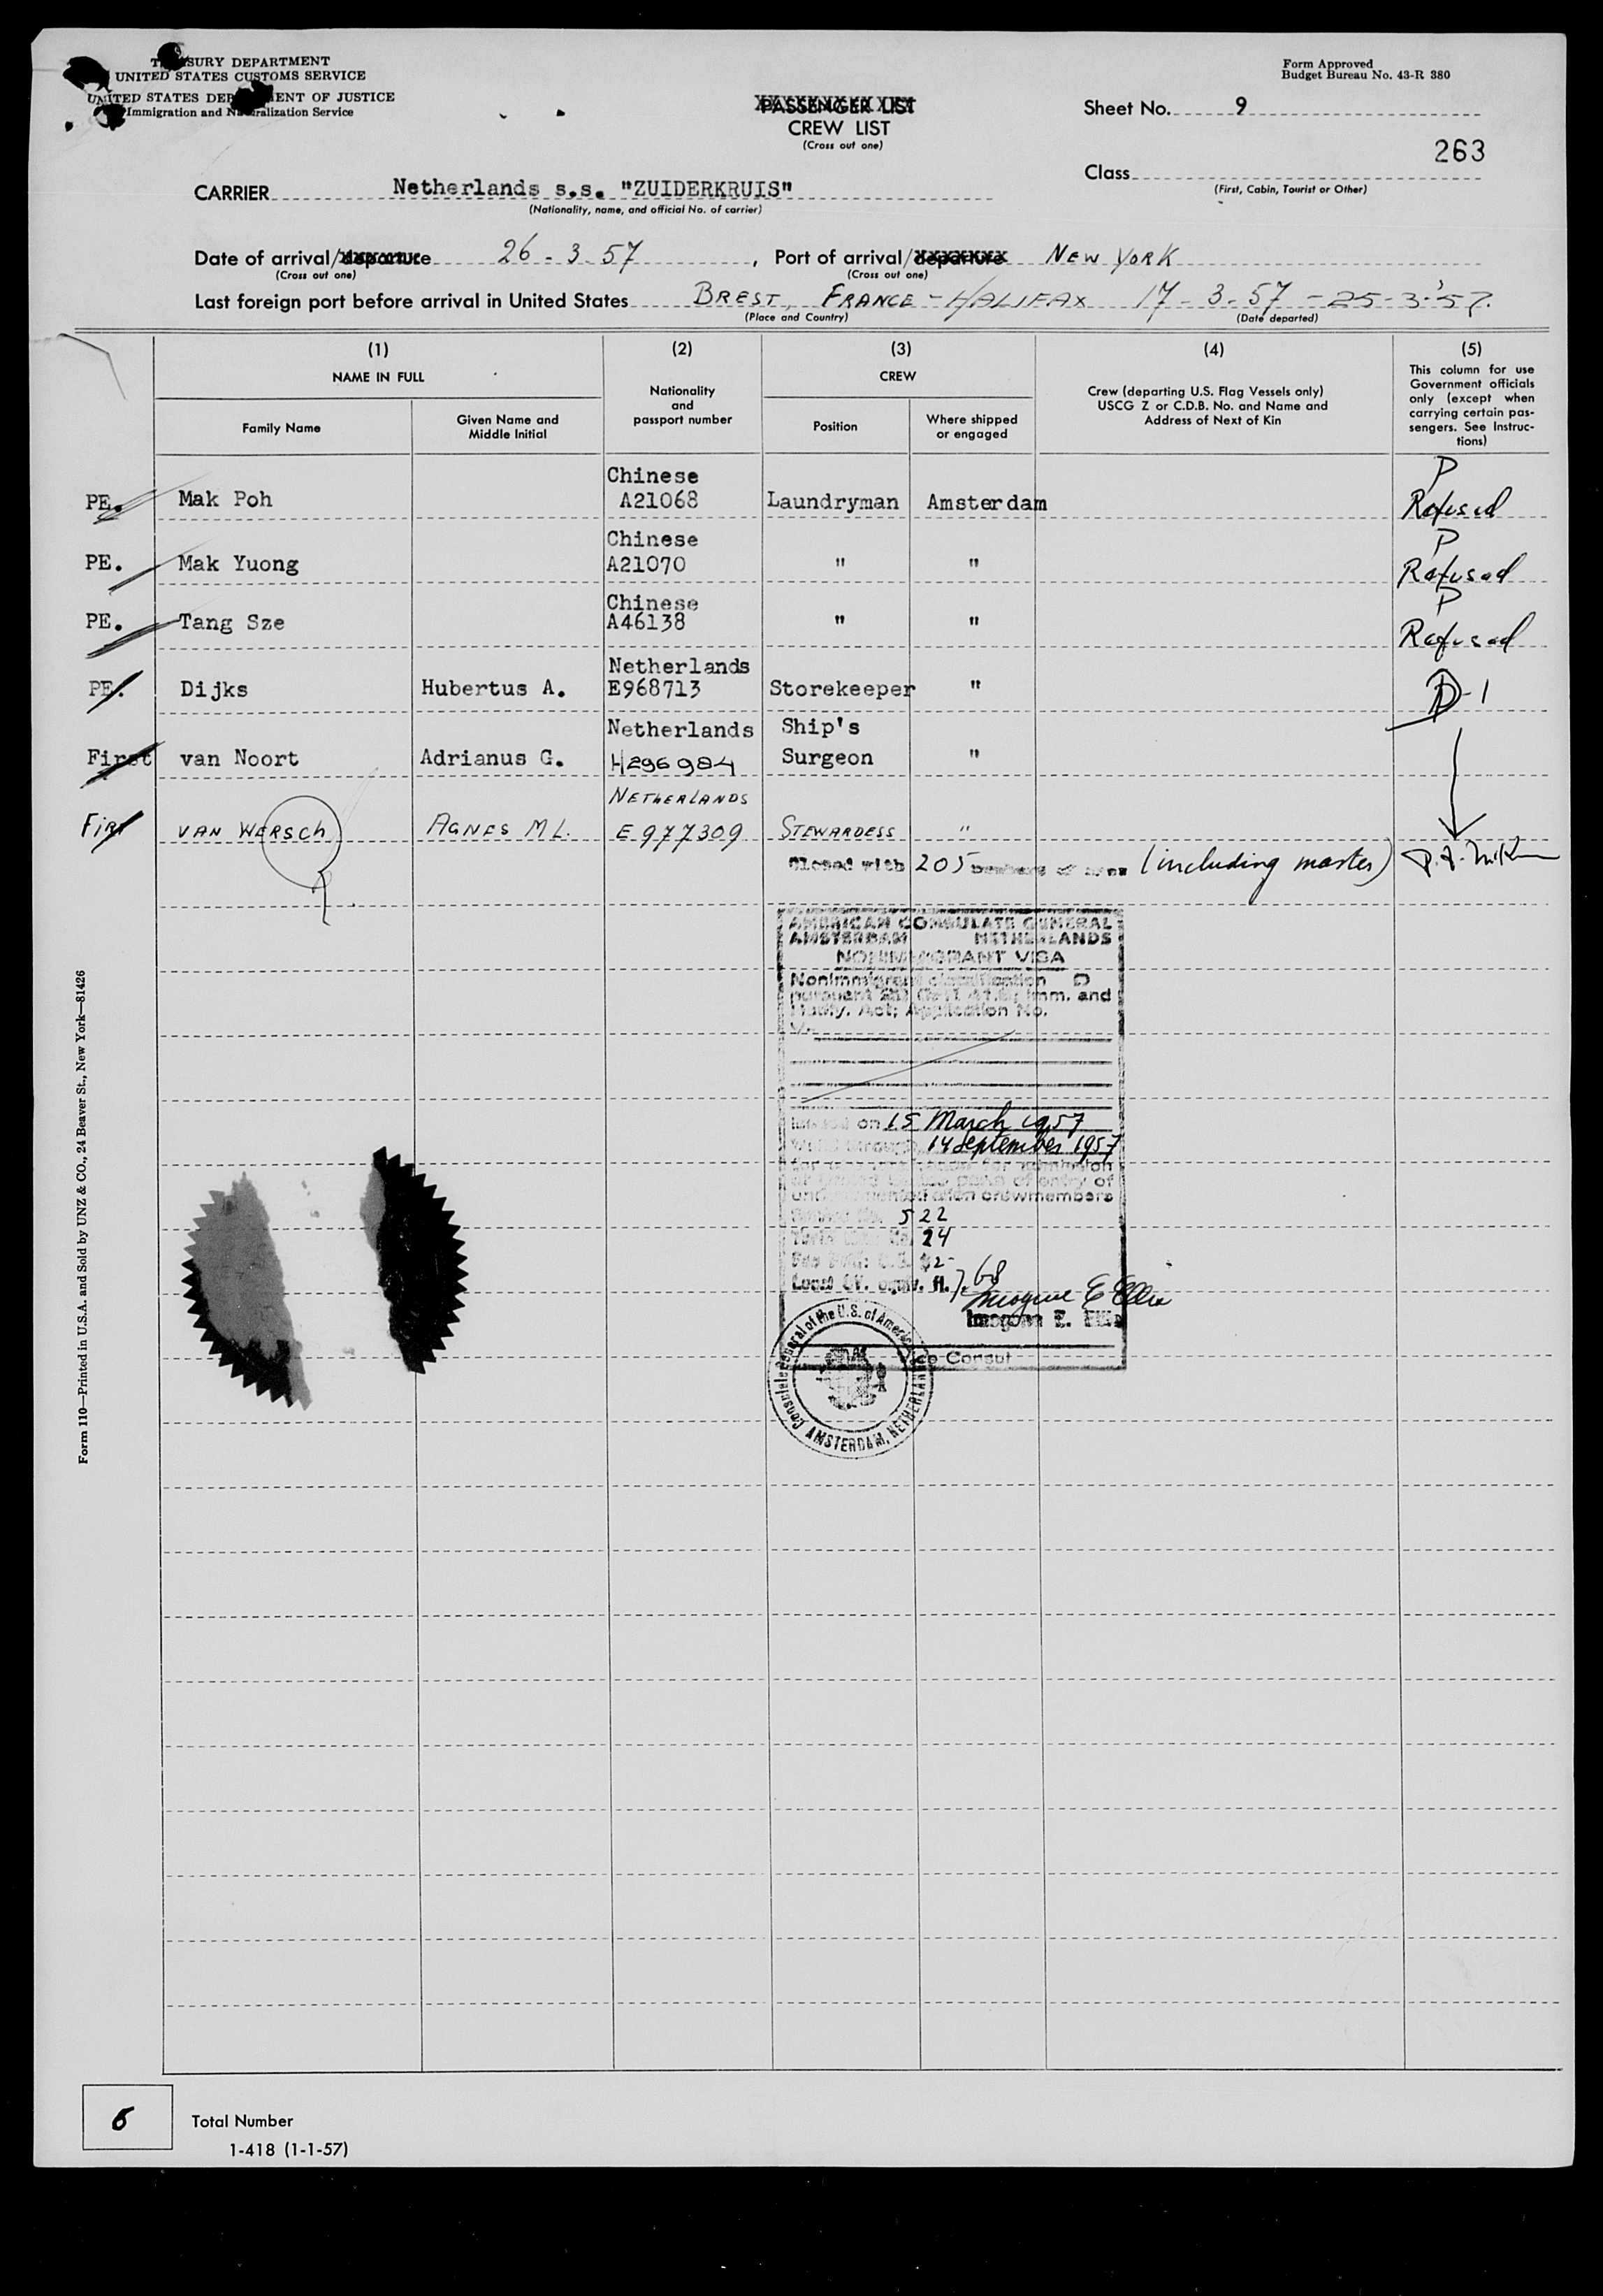 TREASURY DEPARTMENT
UNITED STATES CUSTOMS SERVICE
UNITED STATES DEPARTMENT OF JUSTICE
Immigration and Naturalization Service
Form Approved
Budget Bureau No. 43-R 380
PASSENGER LIST
CREW LIST
(Cross out one)
Sheet No. 9
263
Class
(First, Cabin, Tourist or Other)
CARRIER Netherlands s.s. "ZUIDERKRUIS"
(Nationality, name, and official No. of carrier)
Date of arrival/departure 26-3-57, Port of arrival/departure NEW YORK
(Cross out one) (Cross out one)
Last foreign port before arrival in United States BREST, FRANCE - HALIFAX 17-3-57 - 25-3-'57.
(Place and Country) (Date departed)
(1) (2) (3) (4) (5)
NAME IN FULL
Family Name
Given Name and
Middle Initial
Nationality
and
passport number
CREW
Position
Where shipped
or engaged
Crew (departing U.S. Flag Vessels only)
USCG Z or C.D.B. No. and Name and
Address of Next of Kin
This column for use
Government officials
only (except when
carrying certain pas-
sengers. See Instruc-
tions)
Chinese P
PE. Mak Poh A21068 Laundryman Amsterdam Refused
Chinese P
PE. Mak Yuong A21070 " " Refused
Chinese P
PE. Tang Sze A46138 " " Refused
Netherlands
PE. Dijks Hubertus A. E968713 Storekeeper " D-1
Netherlands Ship's
First van Noort Adrianus G. H296984 Surgeon "
NETHERLANDS
First VAN WERSCH AGNES M L. E977309 STEWARDESS "
Closed with 205 members of crew (including master)
AMERICAN CONSULATE GENERAL
AMSTERDAM NETHERLANDS
NONIMMIGRANT VISA
Nonimmigrant classification D
pursuant Imm. and
Natly. Act; Application No.
V-
Issued on 15 March 1957
Valid through 14 September 1957
for admission
at ports of entry of
alien crewmembers
522
24
Fee Paid: U.S. $2-
Local Cy. equiv. fl. 7.68
Imogene E Ellis
Imogene E. Ellis
Vice Consul
Consulate General of the U.S. of America
AMSTERDAM, NETHERLANDS
Form 110—Printed in U.S.A. and Sold by UNZ & CO., 24 Beaver St., New York—81426
6 Total Number
1-418 (1-1-57)